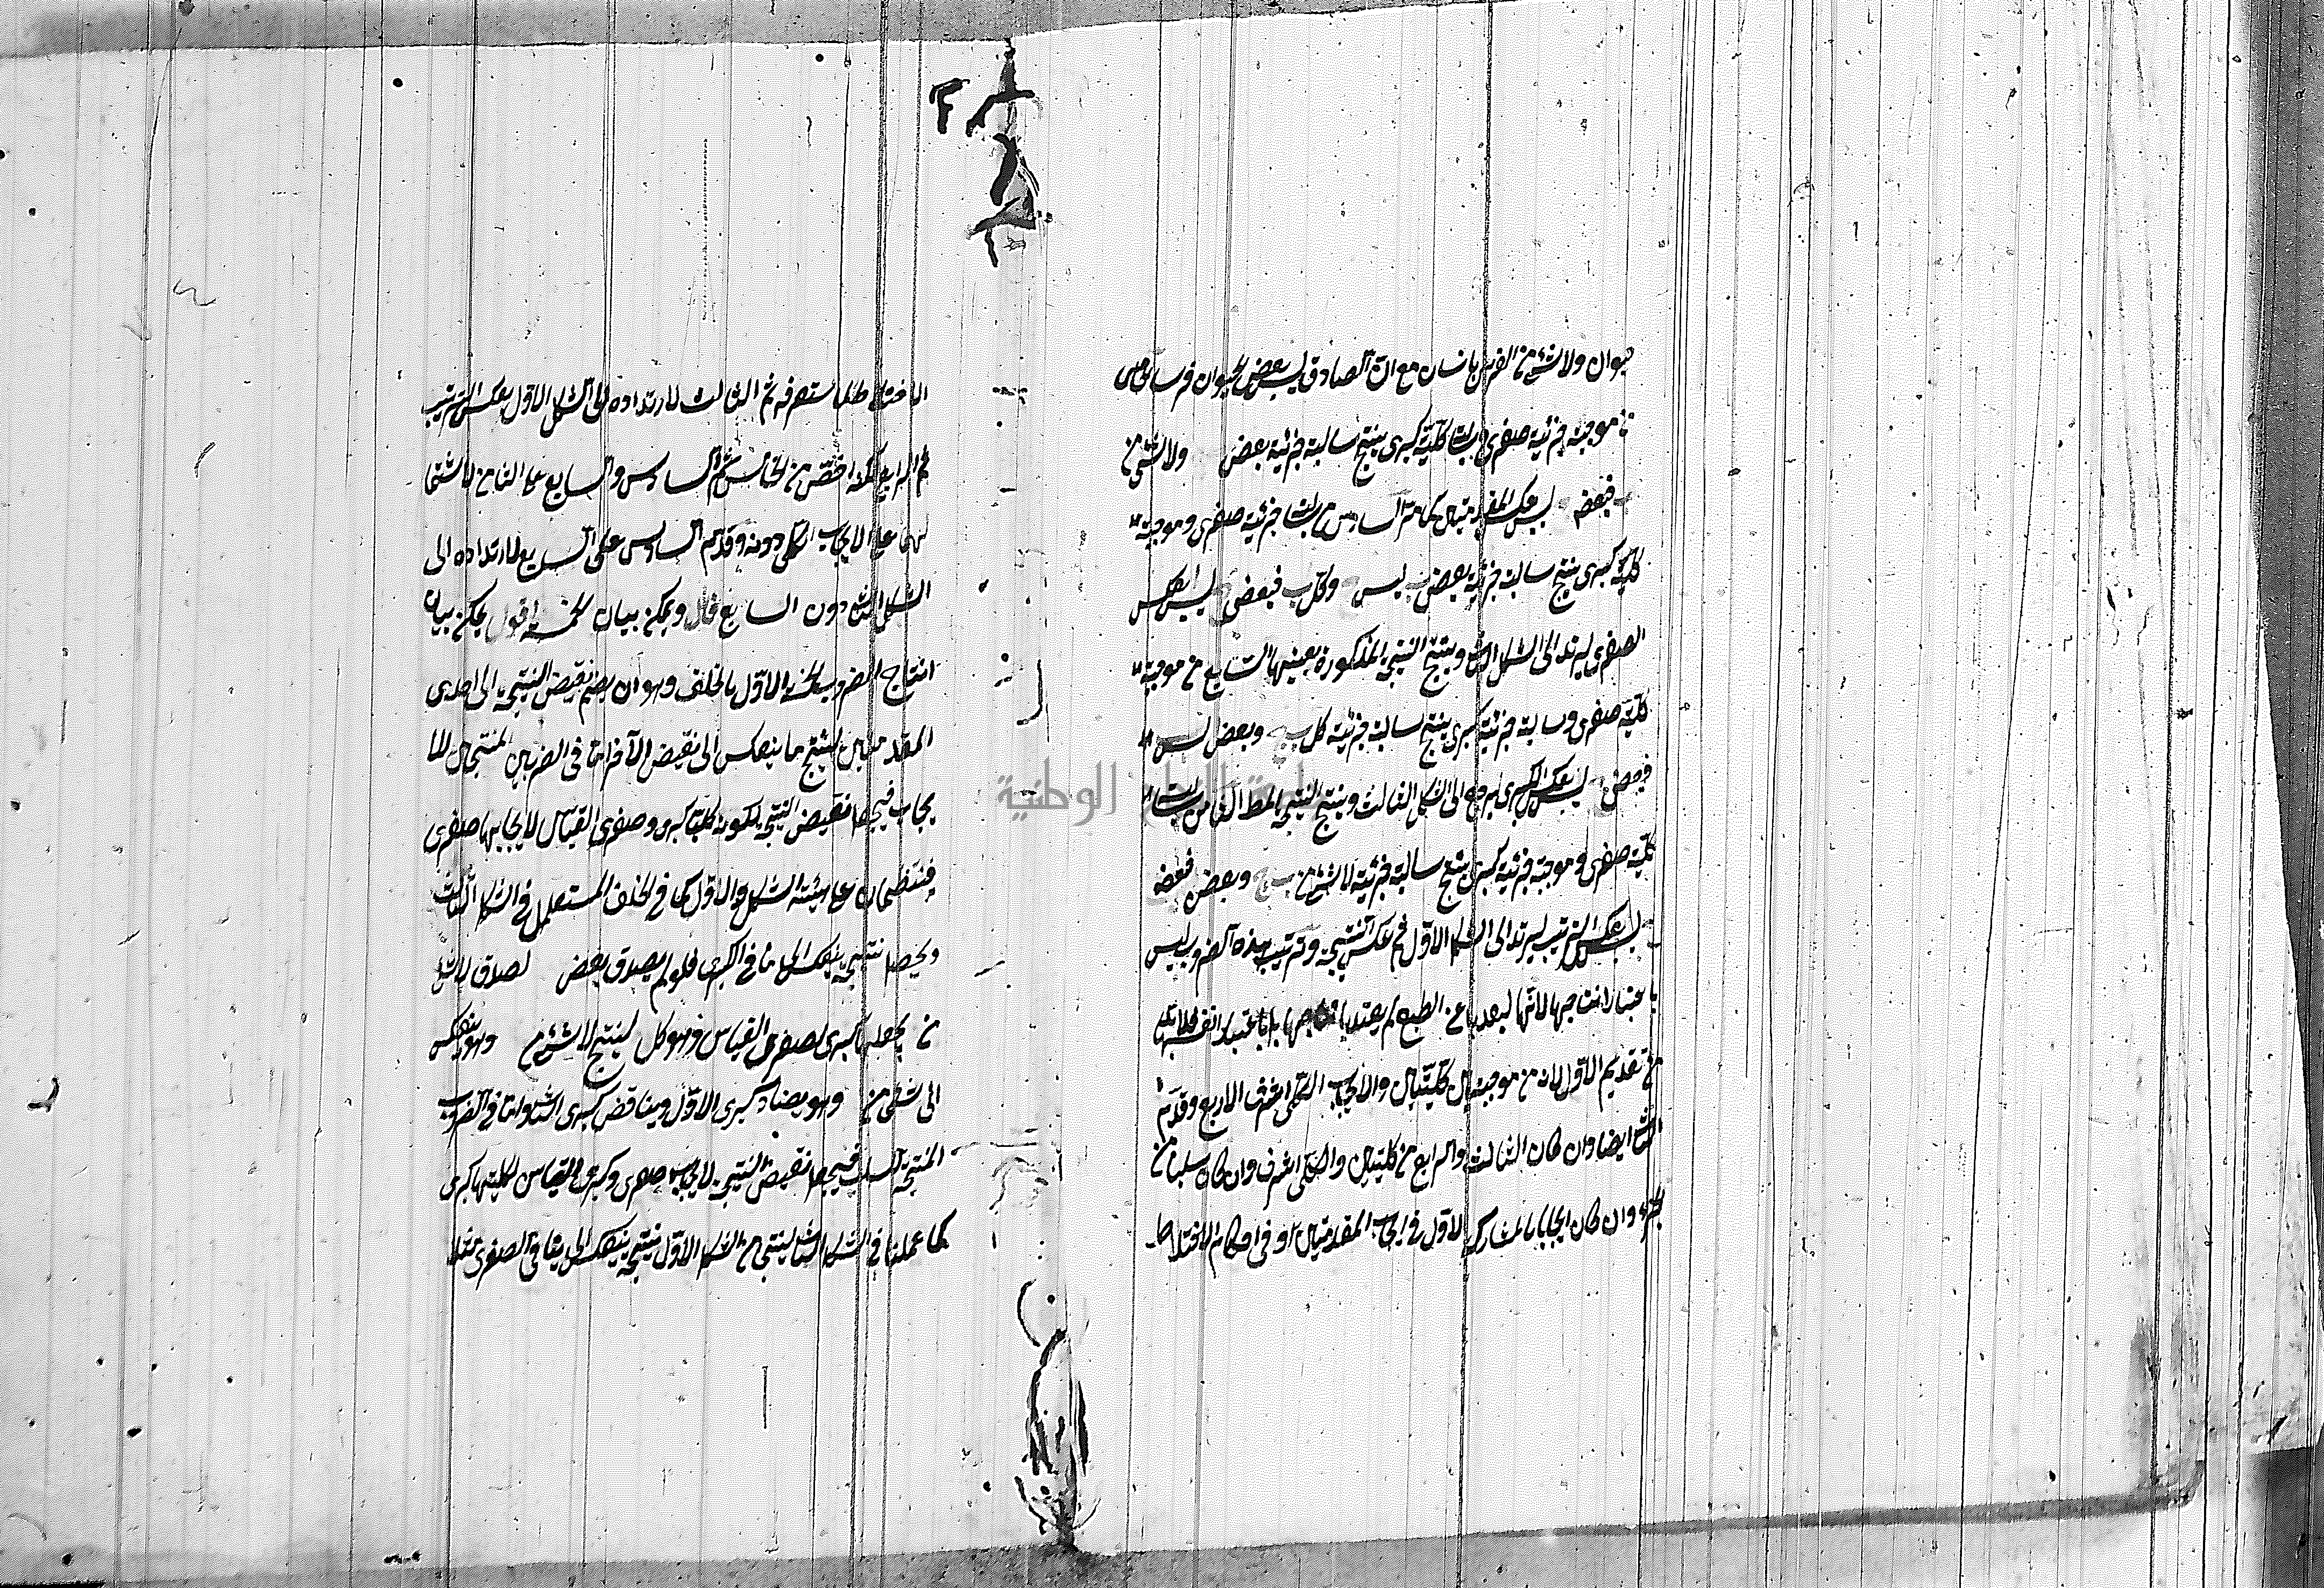 حيوان ولا شئ من الفرس بانسان مع ان الصادق ليس بعض الحيوان فرسا الخامس
من موجبة جزئية صغرى وسالبة كلية كبرى ينتج سالبة جزئية بعض ولا شئ من
فبعض ليس بعكس المقدمتين كما مر السادس من سالبة جزئية صغرى وموجبة
كلية كبرى ينتج سالبة جزئية بعض ب ليس وكل ب فبعض ليس بعكس
الصغرى ليرتد الى الشكل الثانى وينتج النتيجة المذكورة بعينها السابع من موجبة
كلية صغرى وسالبة جزئية كبرى ينتج سالبة جزئية كل ب ج وبعض ليس
فبعض ليس بعكس الكبرى ليرجع الى الشكل الثالث وينتج النتيجة المط الثامن من سالبة
كلية صغرى وموجبة جزئية كبرى ينتج سالبة جزئية لا شئ من ب ج وبعض فبعض
ليس بعكس الترتيب ليرتد الى الشكل الاول ثم عكس النتيجة وترتيب هذه الضروب ليس
باعتبار انتاجها لانها لبعدها عن الطبع لم يعتد بانتاجها بل باعتبار انفسها فلا بد
من تقديم الاول لانه من موجبتين كليتين والايجاب الكلى اشرف الاربع وقدم
الثانى ايضا وان كان الثالث والرابع من كليتين والكلى اشرف وان كان سلبا من
الجزء وان كان ايجابا لمشاركة الاول فى ايجاب المقدمتين او فى احكام الاختلاط
الاختلاط كما ستعرفه ثم الثالث لارتداده الى الشكل الاول بعكس الترتيب
ثم الرابع لكونه اخص من الخامس ثم السادس والسابع على الثامن لاشتما
لهما على الايجاب الكلى دونه وقدم السادس على السابع لارتداده الى
الشكل الثانى دون السابع قال ويمكن بيان الخمسة اقول يمكن بيان
انتاج الضروب الخمسة الاول بالخلف وهو ان يضم نقيض النتيجة الى احدى
المقدمتين لينتج ما ينعكس الى نقيض الاخر اما فى الضربين المنتجين للا
يجاب فيجعل نقيض النتيجة لكونه كليا كبرى وصغرى القياس لايجابها صغرى
فينتظمان على هيئة الشكل الاول كما فى الخلف المستعمل فى الشكل الثالث
ويحصل نتيجة ينعكس الى ما فى الكبرى فلو لم يصدق بعض لصدق لا شئ
من يجعلها كبرى لصغرى القياس وهو كل لينتج لا شئ من وهو ينعكس
الى شئ من وهو يضاد كبرى الاول ويناقض كبرى الثانى واما فى الضروب
المنتجة للسلب فيجعل نقيض النتيجة لايجابه صغرى وكبرى القياس لكليتها كبرى
كما عملنا فى الشكل الثانى لينتج من الشكل الاول نتيجة ينعكس الى ينافى الصغرى مثلا
جامعة الوطنية